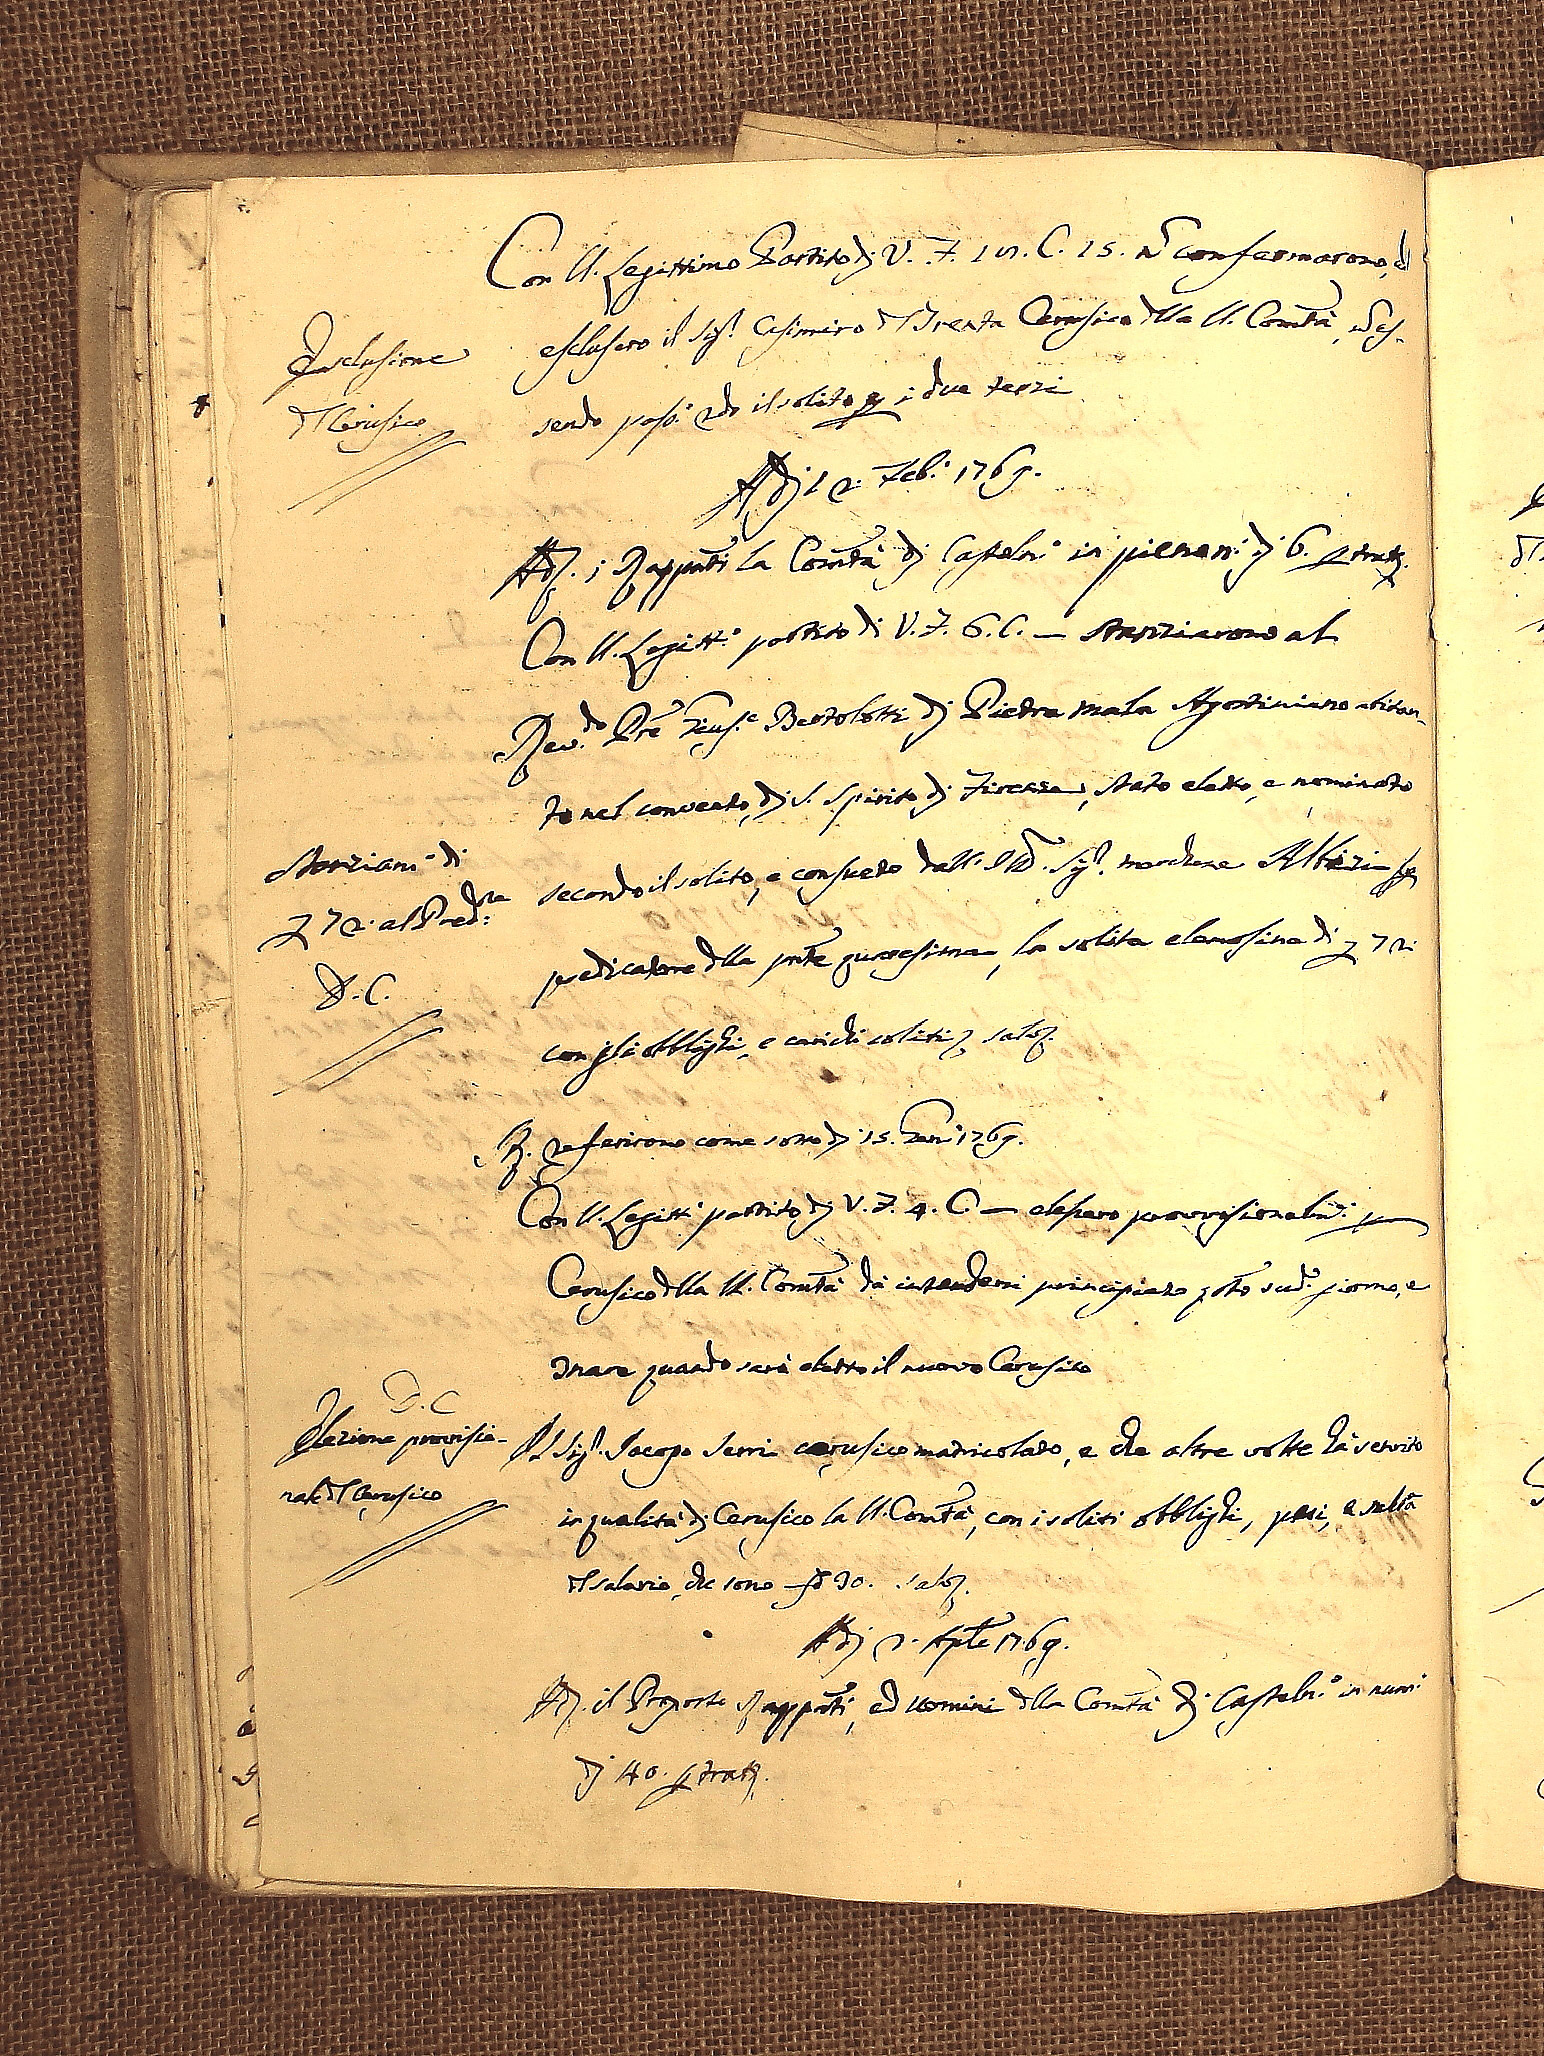 Con U. Legittimo Partito dj V. F. 1 C. 15. nō confermarono, ed
esclusero il Sigr. Casimiro del Trenta Cerusico dlla U. Comtà, nō es-
sendo pass.° il solito p i due terzi
Esclusione
del Cerusico
Adj 12. Feb.° 1769.
Ad. i Rappnti la Comtà dj Casteln.° in pienon.° dj 6. p trat.
Con U. Legitt.° partito di V. F. 6. C. — stanziarono al
Rev.do Pre Gius.e Bertolotti dj Pietra mala Agostiniano abitan-
te nel convento dj S. Spirito dj Firenze, stato eletto, e nominato
secondo il solito, e consueto dall' Illmo. Sigr. marchese Albizi p
predicatore dlla pnte quaresima, la solita elemosina di £ 72
con gli obblighi, e carichi soliti salo.
Stanziam.° di
£ 72. al Pred.re
D. C.
R. referirono come sotto dj 15. Gen.° 1769.
Con U. Legitt.° partito dj V. F. 4. C — elessero provvisionalm.° p
Cerusico dlla U. Comtà da intendersi principiato sud.° giorno, e
quando sarà eletto il nuovo Cerusico
D. C
Elezione provisio-
nale del Cerusico
Il Sigr. Jacopo Serri cerusico matricolato, e che altre volte hà servito
in qualità dj Cerusico la U. Comtà, con i soliti obblighi, pesi, e
del salario, che sono 30. salo.
Adj 2. Aple 1769.
Ad. il Proposto Rappnti, ed Uomini dlla Comtà dj Casteln.° in num.°
dj 40. p trat.